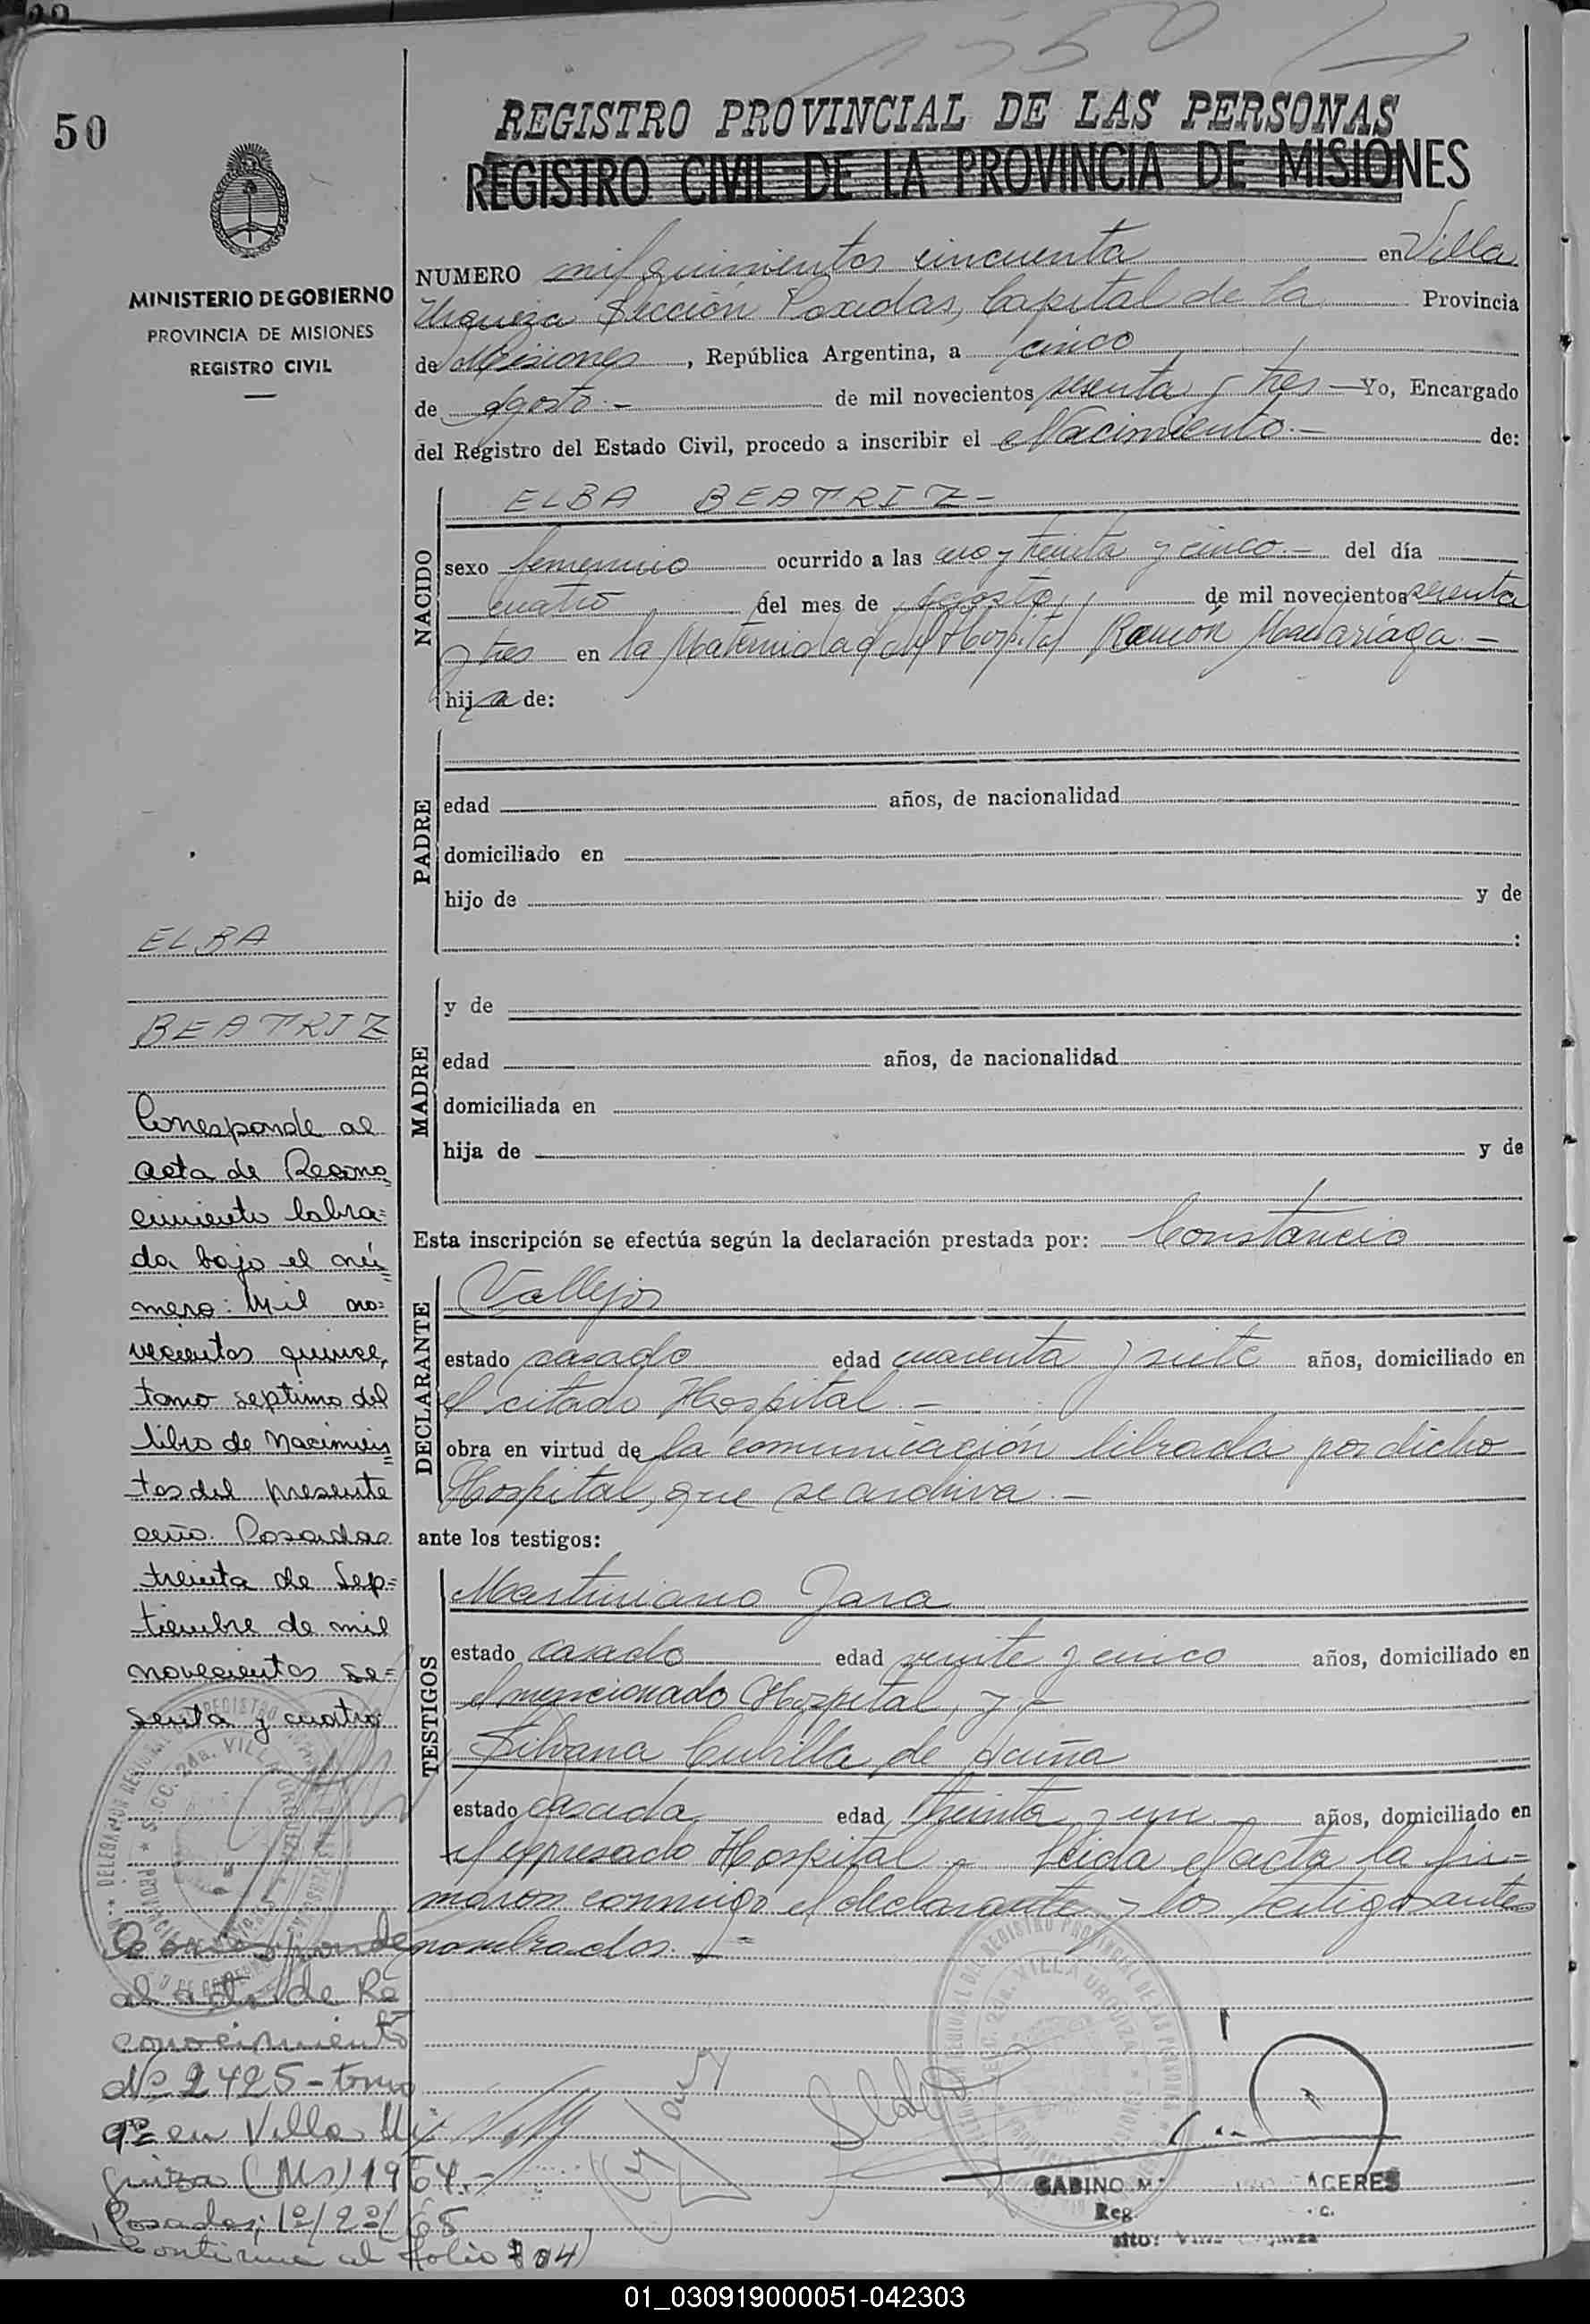 50
MINISTERIO DE GOBIERNO
PROVINCIA DE MISIONES
REGISTRO CIVIL
ELBA
BEATRIZ
Corresponde al
acta de Recono
cimiento labra=
da bajo el nú=
mero: Mil no=
vecientos quince,
tomo septimo del
libro de Nacimien=
tos del presente
año. Posadas
treinta de Sep=
tiembre de mil
novecientos se=
senta y cuatro
Corresponde
al acta de Re
conocimiento
Nº 2425 - tomo
9º en Villa Ur
quiza (Ms) 1964.-
Posadas, 1º/2º/65
Continua al folio 104)
REGISTRO PROVINCIAL DE LAS PERSONAS
REGISTRO CIVIL DE LA PROVINCIA DE MISIONES
NUMERO mil quinientos cincuenta en Villa
Urquiza Sección Posadas, Capital de la Provincia
de Misiones, República Argentina, a cinco
de Agosto.- de mil novecientos sesenta y tres - Yo, Encargado
del Registro del Estado Civil, procedo a inscribir el Nacimiento.- de:
NACIDO
ELBA BEATRIZ-
sexo femenino ocurrido a las cero y treinta y cinco.- del día
cuatro del mes de Agosto de mil novecientos sesenta
y tres en la Maternidad del Hospital Ramón Madariaga.-
hija de:
PADRE
edad años, de nacionalidad
domiciliado en
hijo de y de
:
MADRE
y de
edad años, de nacionalidad
domiciliada en
hija de y de
Esta inscripción se efectúa según la declaración prestada por: Constancio
DECLARANTE
Vallejos
estado casado edad cuarenta y siete años, domiciliado en
el citado Hospital.-
obra en virtud de la comunicación librada por dicho
Hospital, que se archiva.-
ante los testigos:
TESTIGOS
Martiniano Jara
estado casado edad veinte y cinco años, domiciliado en
el mencionado Hospital y -
Silvana Cubilla de Acuña
estado casada edad treinta y un años, domiciliado en
el expresado Hospital.- Leida el acta la fir=
maron conmigo el declarante y los testigos antes
nombrados.-=
GABINO M. ACERES
Reg. C.
01_030919000051-042303